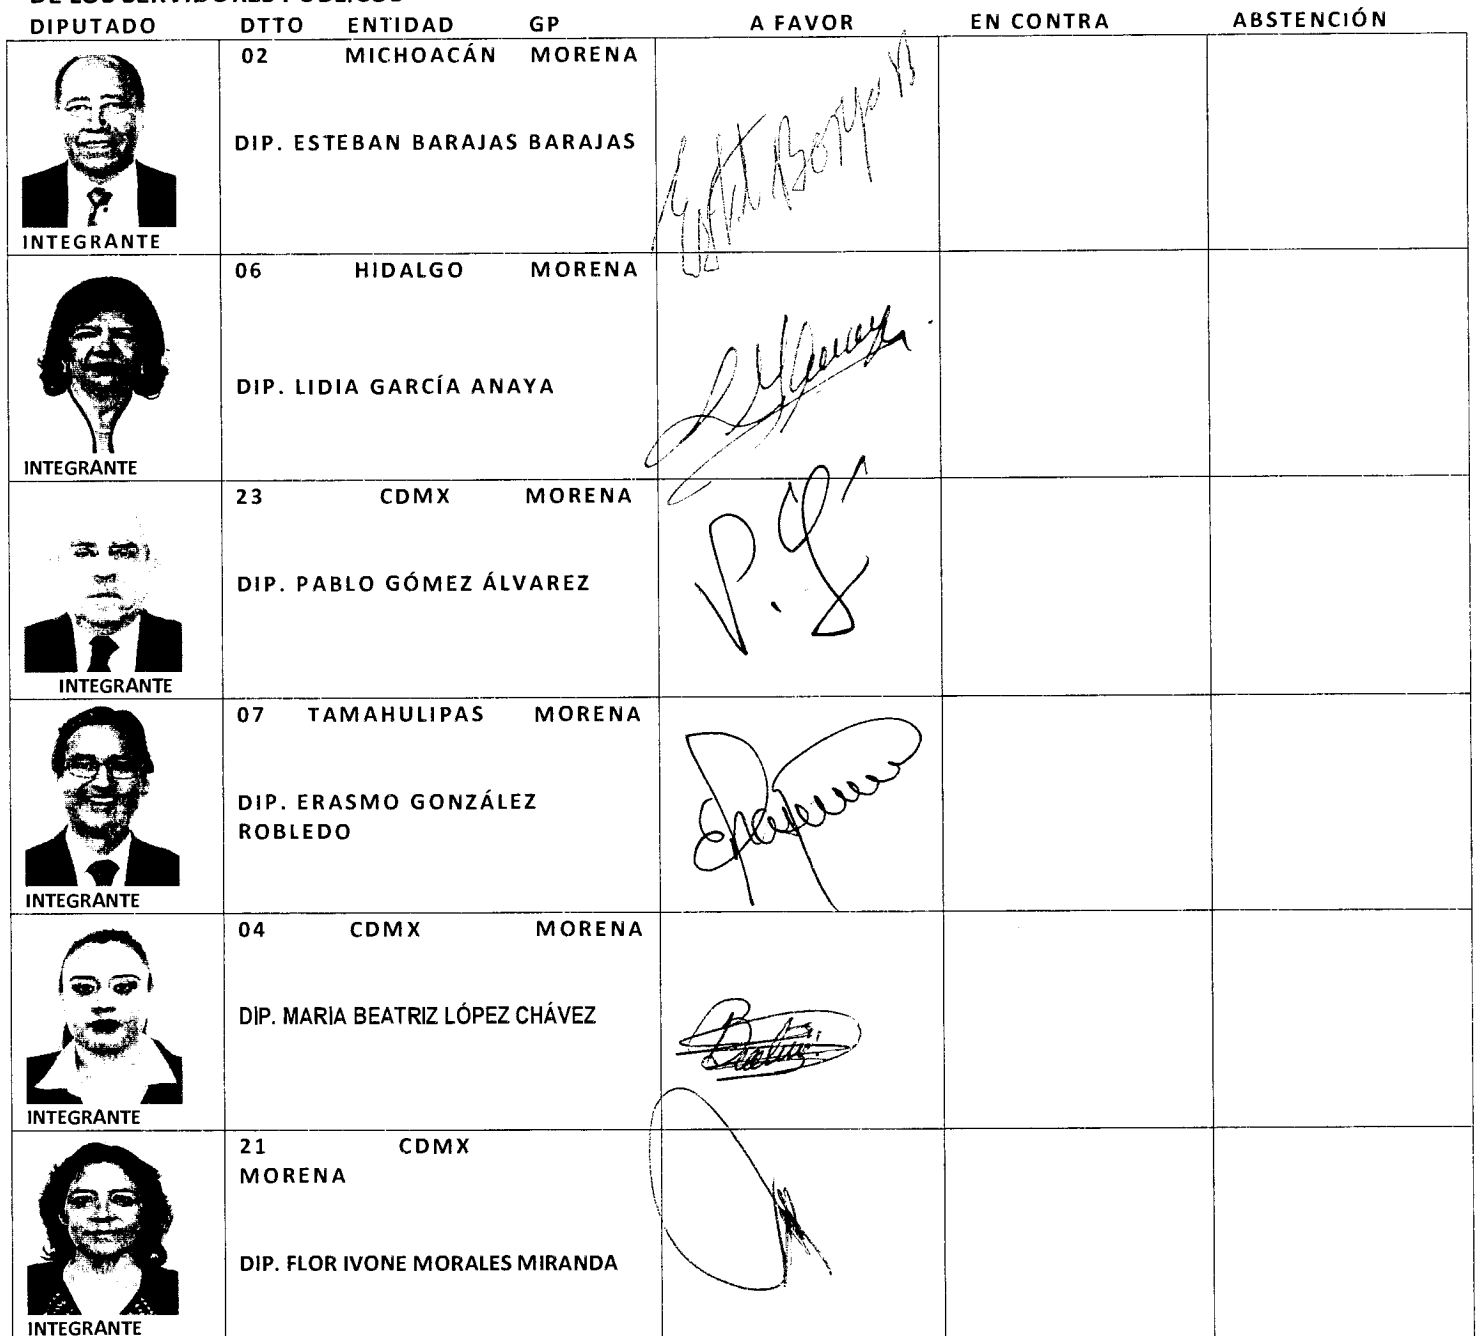 DE LOS SERVIDORES PÚBLICOS
DIPUTADO DTTO ENTIDAD GP A FAVOR EN CONTRA ABSTENCIÓN
02 MICHOACÁN MORENA
DIP. ESTEBAN BARAJAS BARAJAS
INTEGRANTE
06 HIDALGO MORENA
DIP. LIDIA GARCÍA ANAYA
INTEGRANTE
23 CDMX MORENA
DIP. PABLO GÓMEZ ÁLVAREZ
P. G
INTEGRANTE
07 TAMAHULIPAS MORENA
DIP. ERASMO GONZÁLEZ
ROBLEDO
INTEGRANTE
04 CDMX MORENA
DIP. MARIA BEATRIZ LÓPEZ CHÁVEZ
INTEGRANTE
21 CDMX
MORENA
DIP. FLOR IVONE MORALES MIRANDA
INTEGRANTE